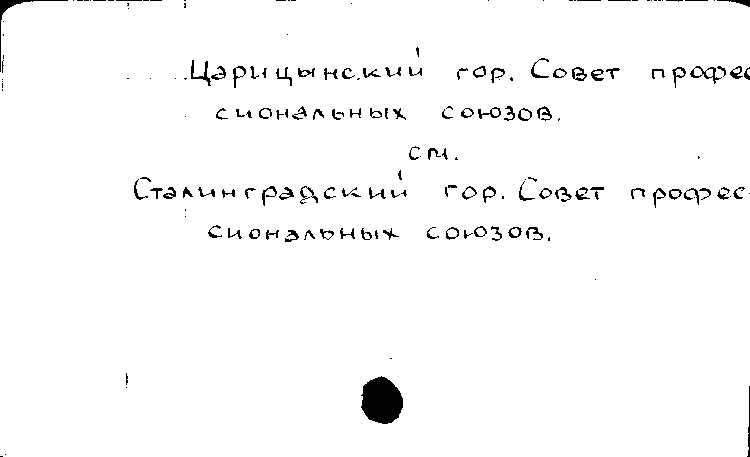 Царицынский гор. Совет профес
сиональных союзов.
см.
Сталинградский гор. Совет профес-
сиональных союзов.